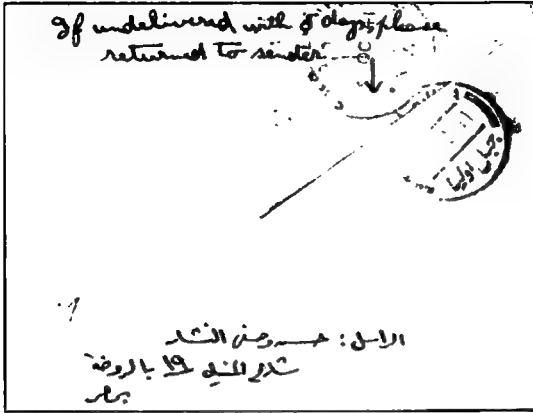 If undelivered with 5 days, please
returned to sender
جبل اوليا
الراسل: النشار
شارع المنيل ١٩ بالروضة
بمصر